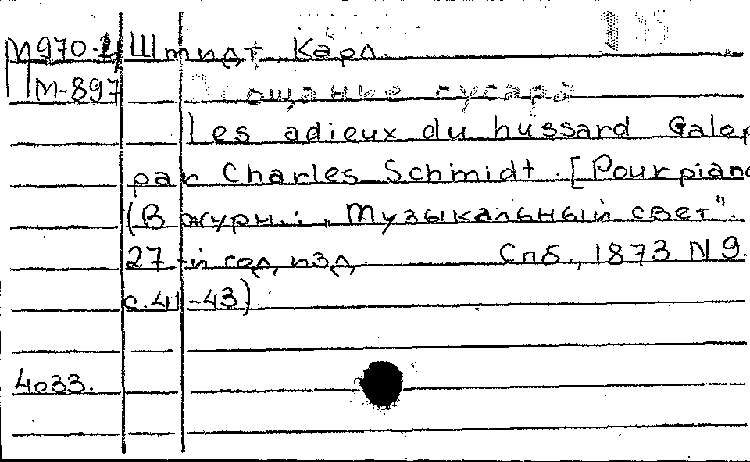 М970-4 Шмидт Карл.
М-897 Прощанье гусара
Les adieux du hussard Galop
par Charles Schmidt. [Pour piano
(В журн.: „Музыкальный свет"
27-й год изд, Спб., 1873 N9
с.41-43)
4033.